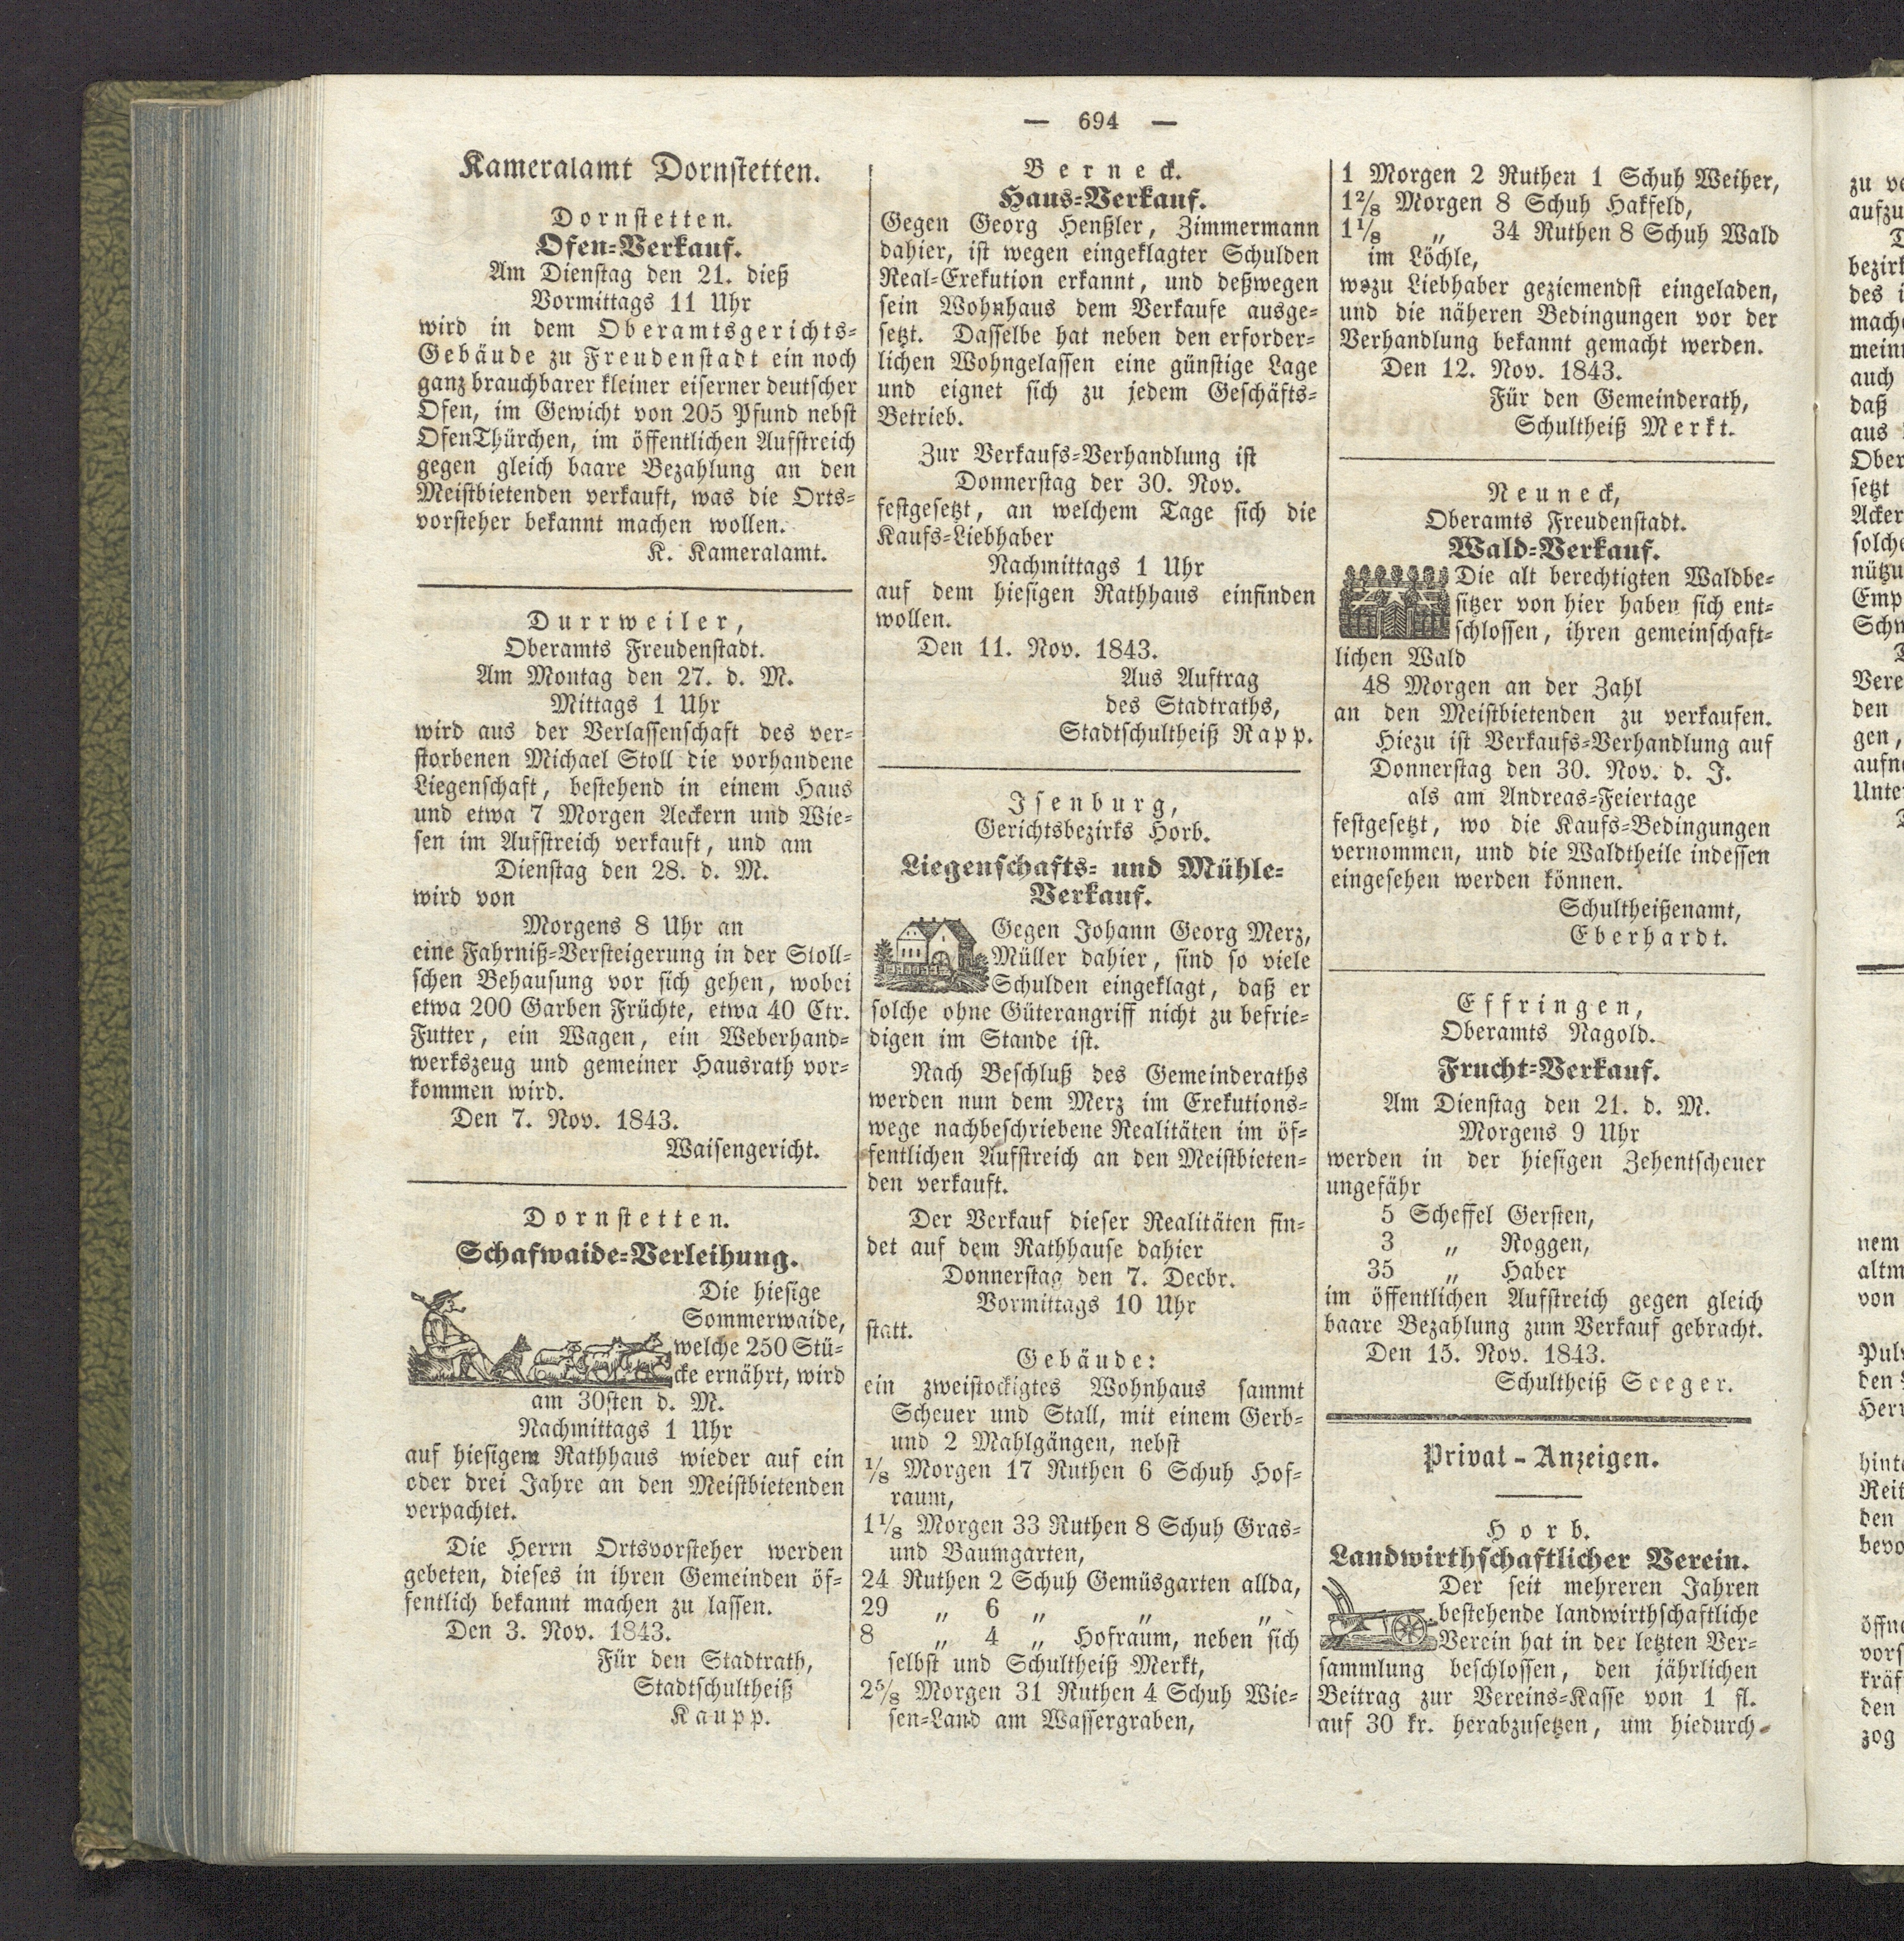 — 694 —
Kameralamt Dornstetten.
Dornstetten.
Ofen-Verkauf.
Am Dienstag den 21. dieß
Vormittags 11 Uhr
wird in dem Oberamtsgerichts-
Gebäude zu Freudenstadt ein noch
ganz brauchbarer kleiner eiserner deutscher
Ofen, im Gewicht von 205 Pfund nebst
OfenThürchen, im öffentlichen Aufstreich
gegen gleich baare Bezahlung an den
Meistbietenden verkauft, was die Orts-
vorsteher bekannt machen wollen.
K. Kameralamt.
Durrweiler,
Oberamts Freudenstadt.
Am Montag den 27. d. M.
Mittags 1 Uhr
wird aus der Verlassenschaft des ver-
storbenen Michael Stoll die vorhandene
Liegenschaft, bestehend in einem Haus
und etwa 7 Morgen Aeckern und Wie-
sen im Aufstreich verkauft, und am
Dienstag den 28. d. M.
wird von
Morgens 8 Uhr an
eine Fahrniß-Versteigerung in der Stoll-
schen Behausung vor sich gehen, wobei
etwa 200 Garben Früchte, etwa 40 Ctr.
Futter, ein Wagen, ein Weberhand-
werkszeug und gemeiner Hausrath vor-
kommen wird.
Den 7. Nov. 1843.
Waisengericht.
Dornstetten.
Schafwaide-Verleihung.
Die hiesige
Sommerwaide,
welche 250 Stü-
cke ernährt, wird
am 30sten d. M.
Nachmittags 1 Uhr
auf hiesigem Rathhaus wieder auf ein
oder drei Jahre an den Meistbietenden
verpachtet.
Die Herrn Ortsvorsteher werden
gebeten, dieses in ihren Gemeinden öf-
fentlich bekannt machen zu lassen.
Den 3. Nov. 1843.
Für den Stadtrath,
Stadtschultheiß
Kaupp.
Berneck.
Haus-Verkauf.
Gegen Georg Henßler, Zimmermann
dahier, ist wegen eingeklagter Schulden
Real-Exekution erkannt, und deßwegen
sein Wohnhaus dem Verkaufe ausge-
setzt. Dasselbe hat neben den erforder-
lichen Wohngelassen eine günstige Lage
und eignet sich zu jedem Geschäfts-
Betrieb.
Zur Verkaufs-Verhandlung ist
Donnerstag der 30. Nov.
festgesetzt, an welchem Tage sich die
Kaufs-Liebhaber
Nachmittags 1 Uhr
auf dem hiesigen Rathhaus einfinden
wollen.
Den 11. Nov. 1843.
Aus Auftrag
des Stadtraths,
Stadtschultheiß Rapp.
Isenburg,
Gerichtsbezirks Horb.
Liegenschafts- und Mühle-
Verkauf.
Gegen Johann Georg Merz,
Müller dahier, sind so viele
Schulden eingeklagt, daß er
solche ohne Güterangriff nicht zu befrie-
digen im Stande ist.
Nach Beschluß des Gemeinderaths
werden nun dem Merz im Exekutions-
wege nachbeschriebene Realitäten im öf-
fentlichen Aufstreich an den Meistbieten-
den verkauft.
Der Verkauf dieser Realitäten fin-
det auf dem Rathhause dahier
Donnerstag den 7. Decbr.
Vormittags 10 Uhr
statt.
Gebäude:
ein zweistockigtes Wohnhaus sammt
Scheuer und Stall, mit einem Gerb-
und 2 Mahlgängen, nebst
1/8 Morgen 17 Ruthen 6 Schuh Hof-
raum,
1 1/8 Morgen 33 Ruthen 8 Schuh Gras-
und Baumgarten,
24 Ruthen 2 Schuh Gemüsgarten allda,
29 „ 6 „ „ „
8 „ 4 „ Hofraum, neben sich
selbst und Schultheiß Merkt,
2 5/8 Morgen 31 Ruthen 4 Schuh Wie-
sen-Land am Wassergraben,
1 Morgen 2 Ruthen 1 Schuh Weiher,
1 2/8 Morgen 8 Schuh Hakfeld,
1 1/8 „ 34 Ruthen 8 Schuh Wald
im Löchle,
wozu Liebhaber geziemendst eingeladen,
und die näheren Bedingungen vor der
Verhandlung bekannt gemacht werden.
Den 12. Nov. 1843.
Für den Gemeinderath,
Schultheiß Merkt.
Neuneck,
Oberamts Freudenstadt.
Wald-Verkauf.
Die alt berechtigten Waldbe-
sitzer von hier haben sich ent-
schlossen, ihren gemeinschaft-
lichen Wald
48 Morgen an der Zahl
an den Meistbietenden zu verkaufen.
Hiezu ist Verkaufs-Verhandlung auf
Donnerstag den 30. Nov. d. J.
als am Andreas-Feiertage
festgesetzt, wo die Kaufs-Bedingungen
vernommen, und die Waldtheile indessen
eingesehen werden können.
Schultheißenamt,
Eberhardt.
Effringen,
Oberamts Nagold.
Frucht-Verkauf.
Am Dienstag den 21. d. M.
Morgens 9 Uhr
werden in der hiesigen Zehentscheuer
ungefähr
5 Scheffel Gersten,
3 „ Roggen,
35 „ Haber
im öffentlichen Aufstreich gegen gleich
baare Bezahlung zum Verkauf gebracht.
Den 15. Nov. 1843.
Schultheiß Seeger.
Privat-Anzeigen.
Horb.
Landwirthschaftlicher Verein.
Der seit mehreren Jahren
bestehende landwirthschaftliche
Verein hat in der letzten Ver-
sammlung beschlossen, den jährlichen
Beitrag zur Vereins-Kasse von 1 fl.
auf 30 kr. herabzusetzen, um hiedurch-